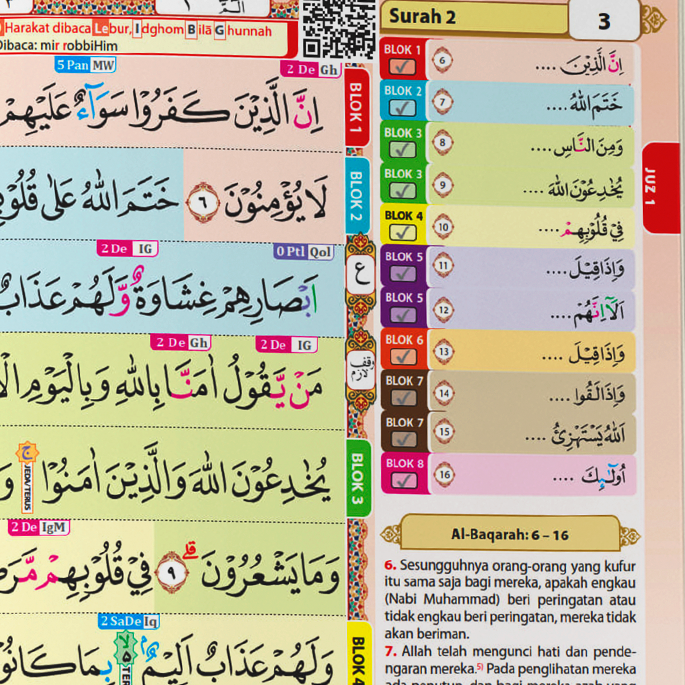 Harakat dibaca Lebur, Idghom Bilā Ghunnah
Dibaca: mir robbiHim
5 Pan MW
2 De Gh
اِنَّ الَّذِيْنَ كَفَرُوْا سَوَاۤءٌ عَلَيْهِمْ
BLOK 1
لَا يُؤْمِنُوْنَ ٦ خَتَمَ اللّٰهُ عَلٰى
BLOK 2
2 De IG
0 Ptl Qol
اَبْصَارِهِمْ غِشَاوَةٌ وَّلَهُمْ عَذَابٌ
ع
2 De Gh
2 De IG
مَنْ يَّقُوْلُ اٰمَنَّا بِاللّٰهِ وَبِالْيَوْمِ
وقف لازم
ج
JEDA/TERUS
يُخٰدِعُوْنَ اللّٰهَ وَالَّذِيْنَ اٰمَنُوْا
BLOK 3
2 De IgM
وَمَا يَشْعُرُوْنَ ٩ فِيْ قُلُوْبِهِمْ
قلے
2 SaDe Iq
وَلَهُمْ عَذَابٌ اَلِيْمٌ بِمَا كَانُوْا
BLOK 4
Surah 2
3
BLOK 1 6 اِنَّ الَّذِيْنَ ....
BLOK 2 7 خَتَمَ اللّٰهُ ....
BLOK 3 8 وَمِنَ النَّاسِ ....
BLOK 3 9 يُخٰدِعُوْنَ اللّٰهَ ....
BLOK 4 10 فِيْ قُلُوْبِهِمْ ....
BLOK 5 11 وَاِذَا قِيْلَ ....
BLOK 5 12 اَلَآ اِنَّهُمْ ....
BLOK 6 13 وَاِذَا قِيْلَ ....
BLOK 7 14 وَاِذَا لَقُوا ....
BLOK 7 15 اَللّٰهُ يَسْتَهْزِئُ ....
BLOK 8 16 اُولٰۤىِٕكَ ....
JUZ 1
Al-Baqarah: 6 – 16
6. Sesungguhnya orang-orang yang kufur
itu sama saja bagi mereka, apakah engkau
(Nabi Muhammad) beri peringatan atau
tidak engkau beri peringatan, mereka tidak
akan beriman.
7. Allah telah mengunci hati dan pende-
ngaran mereka.5) Pada penglihatan mereka